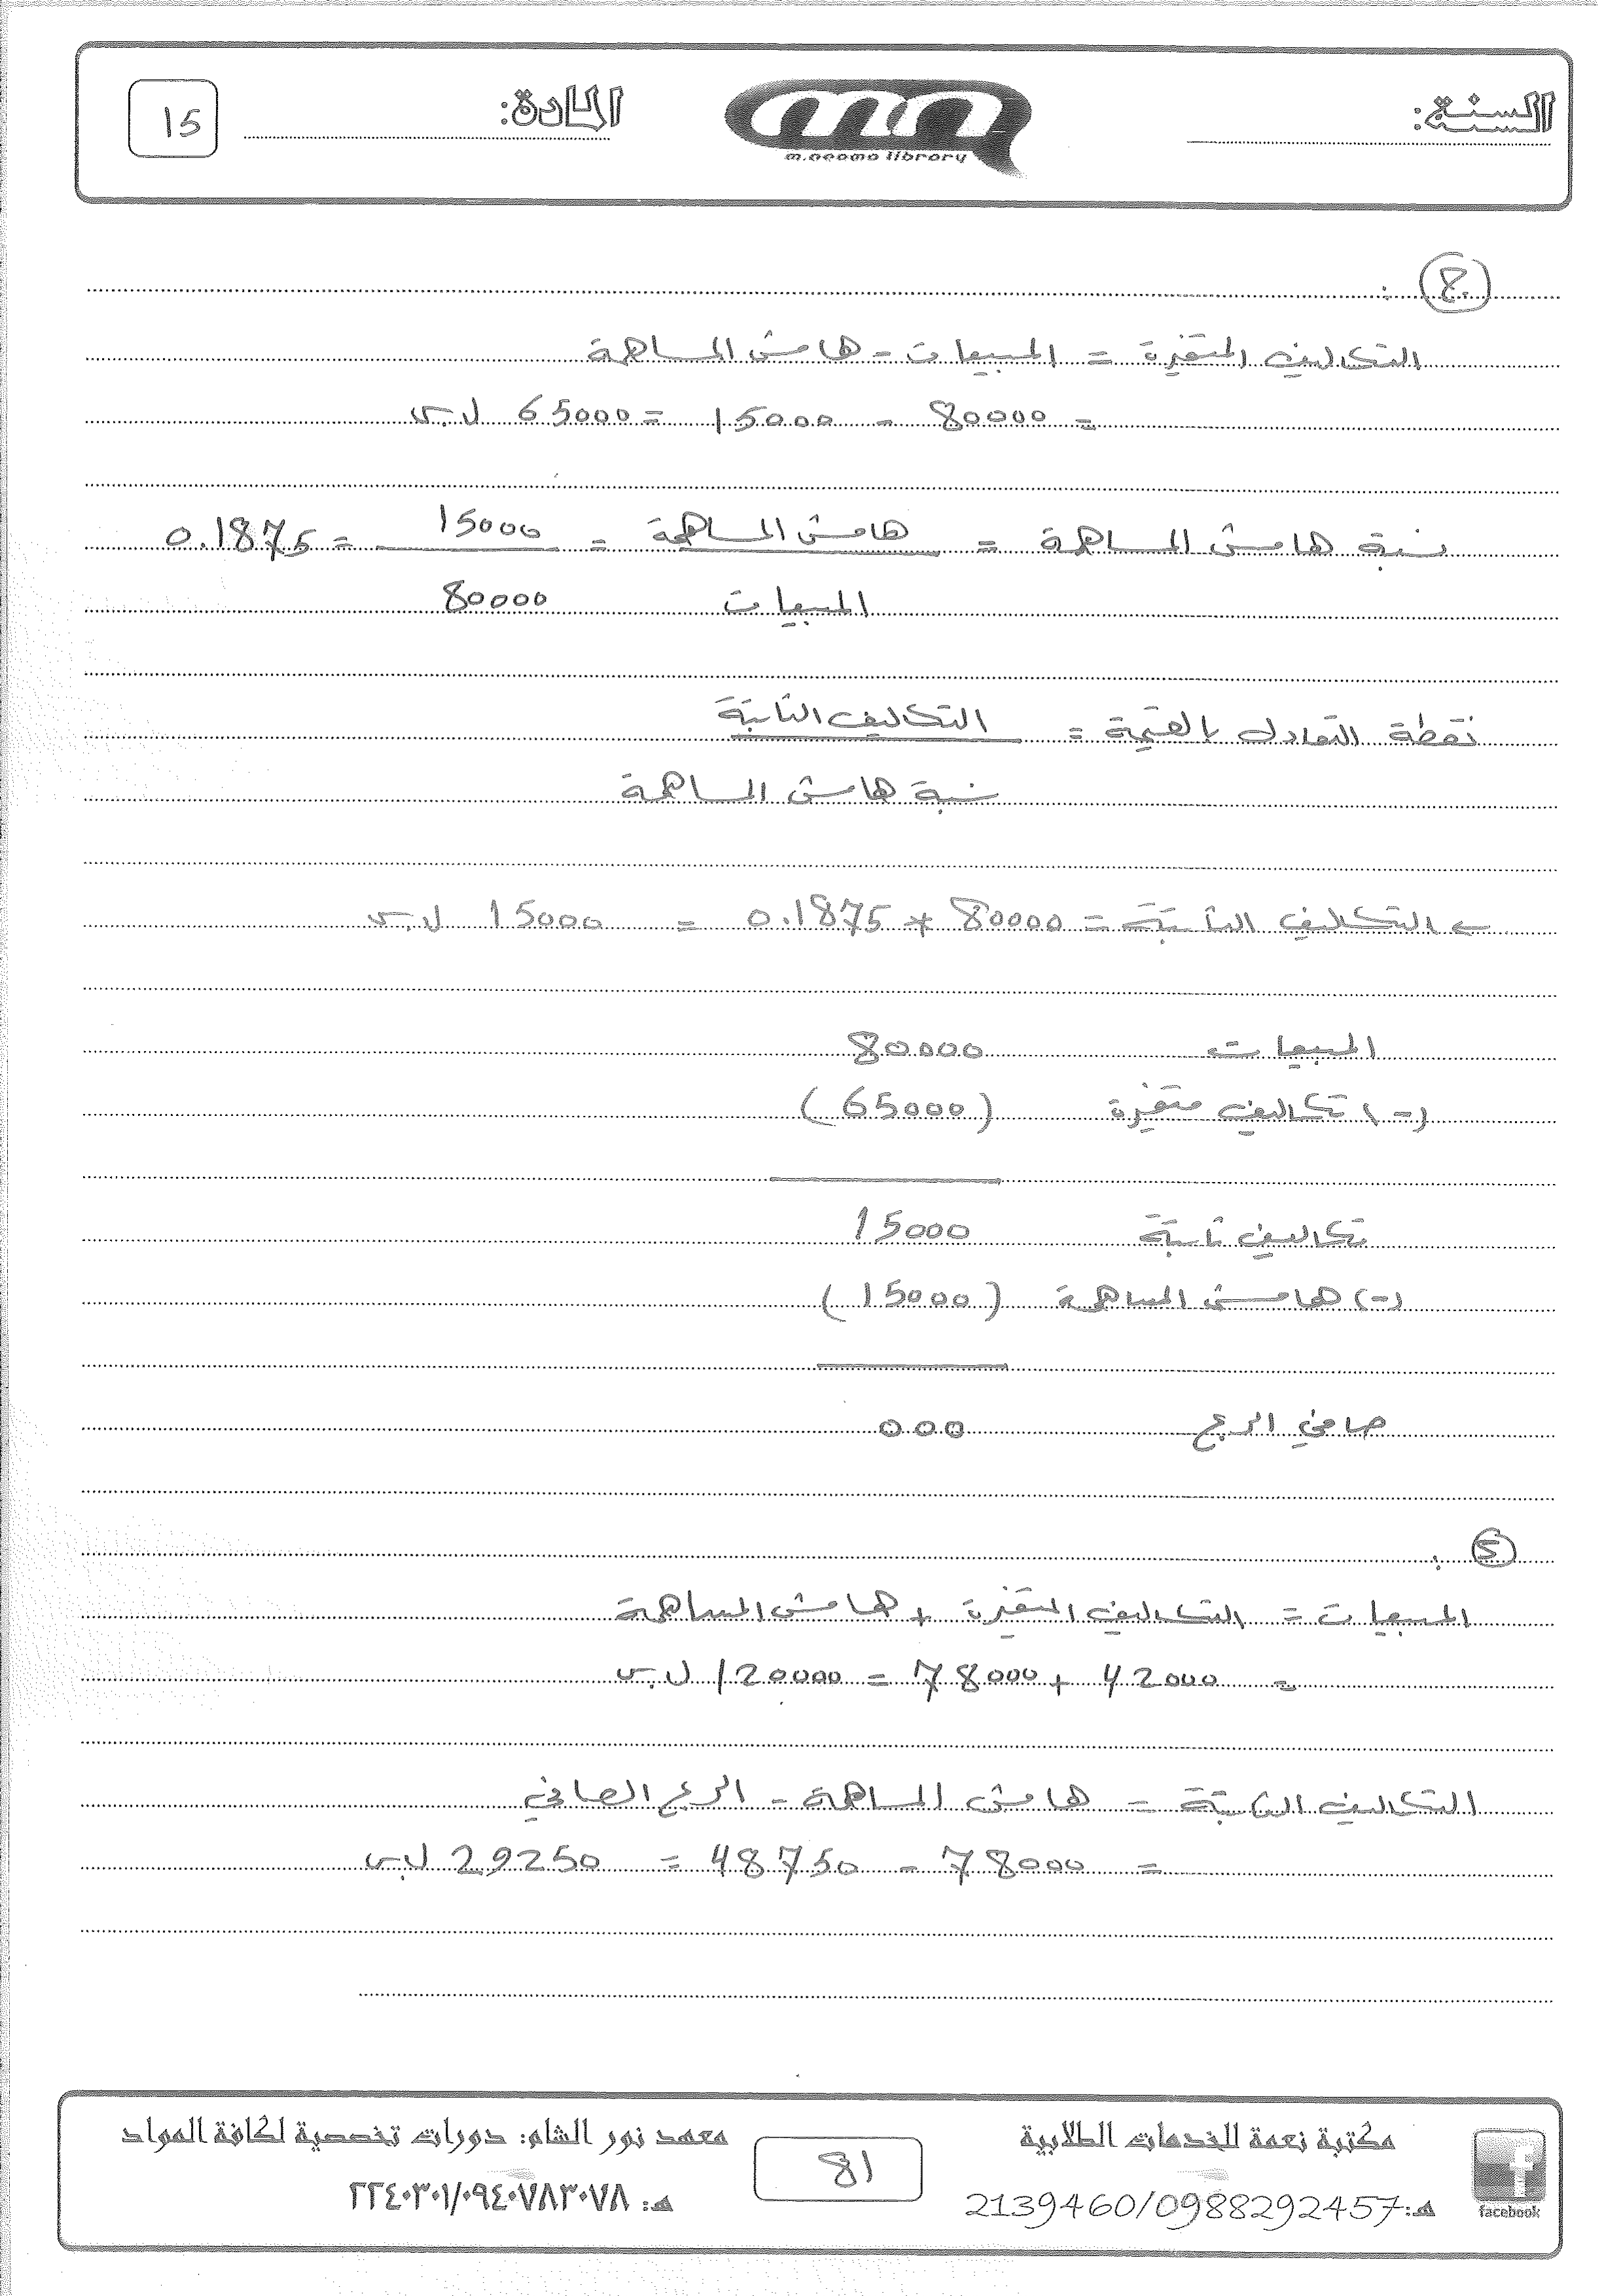 السنة: المادة: 15
m.neoma library
ج :
التكاليف المتغيرة = المبيعات - هامش المساهمة
= 80000 - 15000 = 65000 ل.س
نسبة هامش المساهمة = هامش المساهمة = 15000 = 0.1875
المبيعات 80000
نقطة التعادل بالقيمة = التكاليف الثابتة
نسبة هامش المساهمة
← التكاليف الثابتة = 80000 * 0.1875 = 15000 ل.س
المبيعات 80000
(-) تكاليف متغيرة (65000)
تكاليف ثابتة 15000
(-) هامش المساهمة (15000)
صافي الربح 000
د :
المبيعات = التكاليف المتغيرة + هامش المساهمة
= 42000 + 78000 = 120000 ل.س
التكاليف الثابتة = هامش المساهمة - الربح الصافي
= 78000 - 48750 = 29250 ل.س
مكتبة نعمة للخدمات الطلابية
هـ: 2139460/0988292457
facebook
81
معهد نور الشام: دورات تخصصية لكافة المواد
هـ: ٢٢٤٠٣٠١/٠٩٤٠٧٨٣٠٧٨